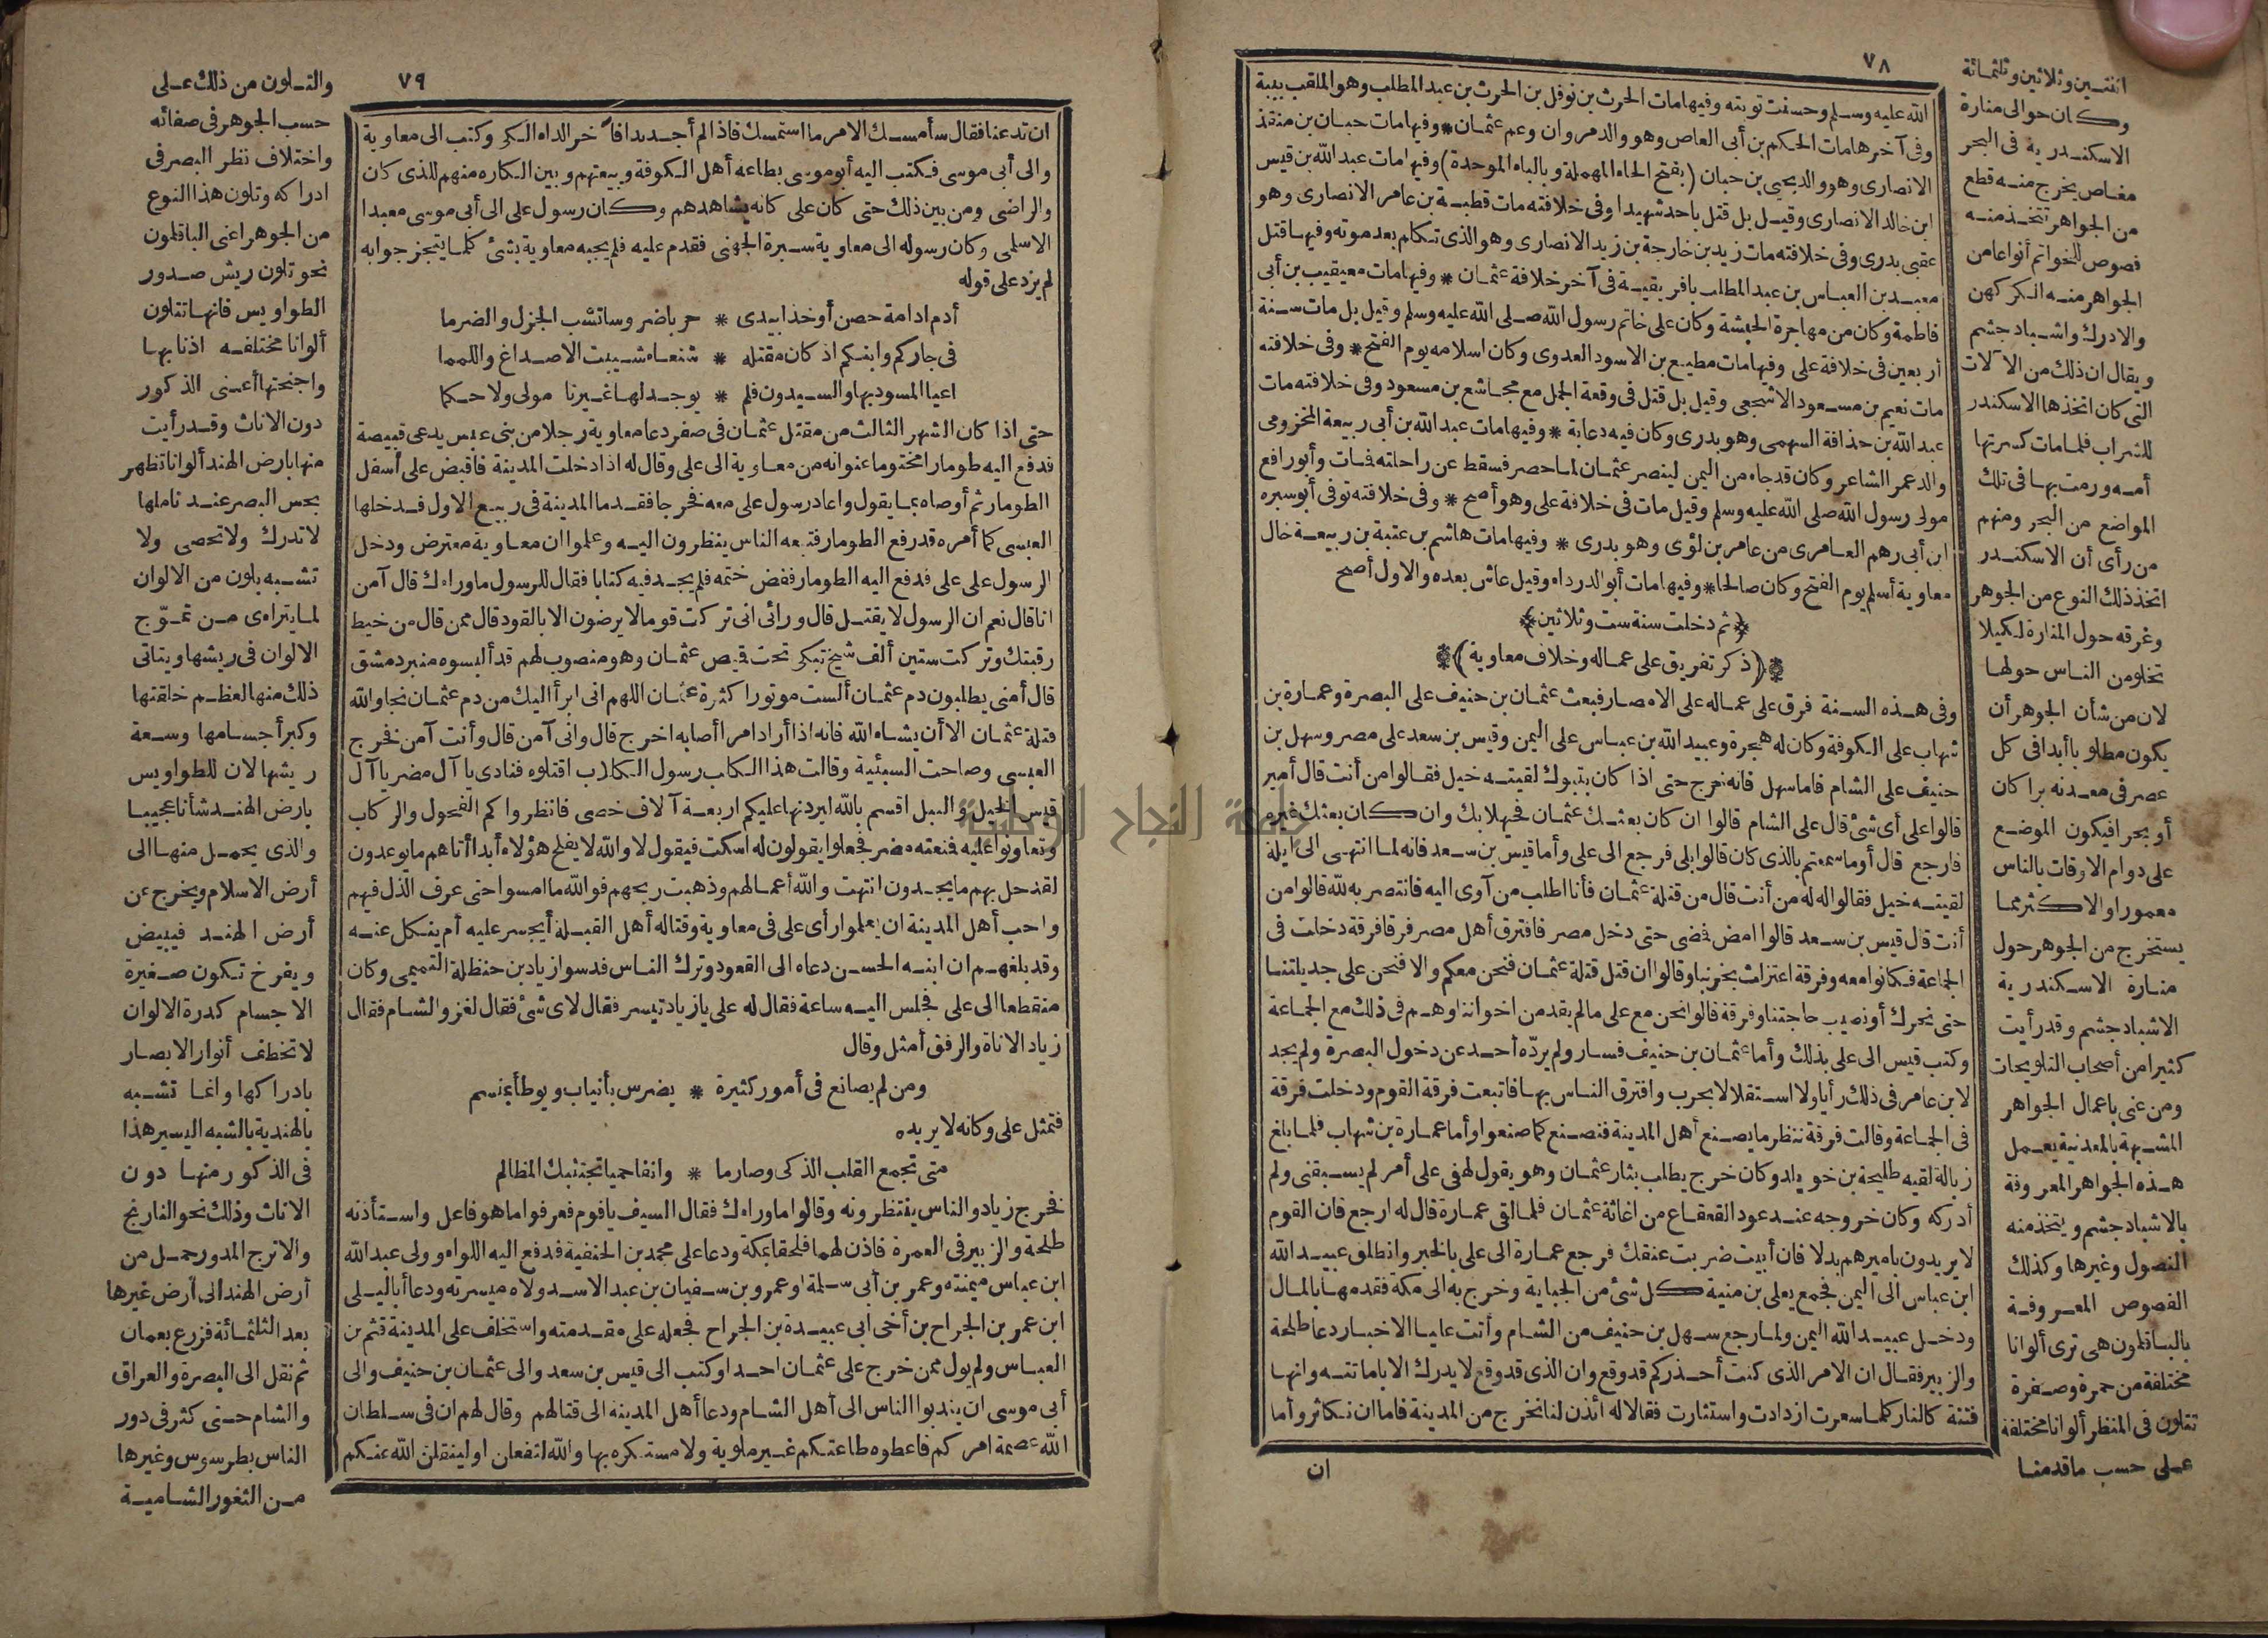 ٧٨
الله عليه وسلم وحسنت توبته وفيها مات الحرث بن نوفل بن الحرث بن عبد المطلب وهو الملقب ببة
وفى آخرها مات الحكم بن أبى العاص وهو والد مروان وعم عثمان * وفيها مات حبان بن منقذ
الانصارى وهو والد يحيى بن حبان (بفتح الحاء المهملة وبالباء الموحدة) وفيها مات عبد الله بن قيس
ابن خالد الانصارى وقيل بل قتل باحد شهيدا وفى خلافته مات قطبة بن عامر الانصارى وهو
عقبى بدرى وفى خلافته مات زيد بن خارجة بن زيد الانصارى وهو الذى تكلم بعد موته وفيها قتل
معبد بن العباس بن عبد المطلب بافريقية فى آخر خلافة عثمان * وفيها مات معيقيب بن أبى
فاطمة وكان من مهاجرة الحبشة وكان على خاتم رسول الله صلى الله عليه وسلم وقيل بل مات سنة
أربعين فى خلافة على وفيها مات مطيع بن الاسود العدوى وكان اسلامه يوم الفتح * وفى خلافته
مات نعيم بن مسعود الاشجعى وقيل بل قتل فى وقعة الجمل مع مجاشع بن مسعود وفى خلافته مات
عبد الله بن حذافة السهمى وهو بدرى وكان فيه دعابة * وفيها مات عبد الله بن أبى ربيعة المخزومى
والد عمر الشاعر وكان قد جاء من اليمن لينصر عثمان لما حصر فسقط عن راحلته فمات وأبو رافع
مولى رسول الله صلى الله عليه وسلم وقيل مات فى خلافة على وهو أصح * وفى خلافته توفى أبو سبره
ابن أبى رهم العامرى من عامر بن لؤى وهو بدرى * وفيها مات هاشم بن عتبة بن ربيعة خال
معاوية أسلم يوم الفتح وكان صالحا * وفيها مات أبو الدرداء وقيل عاش بعده والاول أصح
﴿ثم دخلت سنة ست وثلاثين﴾
(ذكر تفريق على عماله وخلاف معاوية)
وفى هذه السنة فرق على عماله على الامصار فبعث عثمان بن حنيف على البصرة وعمارة بن
شهاب على الكوفة وكان له هجرة وعبيد الله بن عباس على اليمن وقيس بن سعد على مصر وسهل بن
حنيف على الشام فاما سهل فانه خرج حتى اذا كان بتبوك لقيته خيل فقالوا من أنت قال أمير
قالوا على أى شئ قال على الشام قالوا ان كان بعثك عثمان فحيهلا بك وان كان بعثك غيره
فارجع قال أوما سمعتم بالذى كان قالوا بلى فرجع الى على وأما قيس بن سعد فانه لما انتهى الى ايلة
لقيته خيل فقالوا له من أنت قال من قتلة عثمان فأنا اطلب من آوى اليه فانتصر به لله قالوا من
أنت قال قيس بن سعد قالوا امض فضى حتى دخل مصر فافترق أهل مصر فرقا فرقة دخلت فى
الجماعة فكانوا معه وفرقة اعتزلت بخرنبا وقالوا ان قتل قتلة عثمان فنحن معكم والا فنحن على جديلتنا
حتى نحرك أو نصيب حاجتنا وفرقة قالوا نحن مع على ما لم يقد من اخواننا وهم فى ذلك مع الجماعة
وكتب قيس الى على بذلك وأما عثمان بن حنيف فسار ولم يرده أحد عن دخول البصرة ولم يجد
لابن عامر فى ذلك رأيا ولا استقلالا بحرب وافترق الناس بها فاتبعت فرقة القوم ودخلت فرقة
فى الجماعة وقالت فرقة ننظر ما يصنع أهل المدينة فنصنع كما صنعوا وأما عمارة بن شهاب فلما بلغ
زبالة لقيه طليحة بن خويلد وكان خرج يطلب بثار عثمان وهو يقول لهفى على أمر لم يسبقنى ولم
أدركه وكان خروجه عند عود القعقاع من اغاثة عثمان فلما لقى عمارة قال له ارجع فان القوم
لا يريدون باميرهم بدلا فان أبيت ضربت عنقك فرجع عمارة الى على بالخبر وانطلق عبيد الله
ابن عباس الى اليمن فجمع يعلى بن منية كل شئ من الجباية وخرج به الى مكة فقدمها بالمال
ودخل عبيد الله اليمن ولما رجع سهل بن حنيف من الشام وأتت عليا الاخبار دعا طلحة
والزبير فقال ان الامر الذى كنت أحذركم قد وقع وان الذى قد وقع لا يدرك الا باماتته وانها
فتنة كالنار كلما سعرت ازدادت واستثارت فقالا له ائذن لنا نخرج من المدينة فاما ان نكاثر وأما
ان
اثنتين وثلاثين وثلثمائة
وكان حوالى منارة
الاسكندرية فى البحر
مغاص يخرج منه قطع
من الجواهر تتخذ منه
فصوص للخواتم أنواعا من
الجواهر منه الكركهن
والادرك واشباد جشم
ويقال ان ذلك من الآلات
التى كان اتخذها الاسكندر
للشراب فلما مات كسرتها
أمه ورمت بها فى تلك
المواضع من البحر ومنهم
من رأى أن الاسكندر
اتخذ ذلك النوع من الجوهر
وغرقه حول المنارة لكيلا
تخلو من الناس حولها
لان من شأن الجوهر أن
يكون مطلوبا أبدا فى كل
عصر فى معدنه برا كان
أو بحرا فيكون الموضع
على دوام الاوقات بالناس
معمورا والاكثر مما
يستخرج من الجوهر حول
منارة الاسكندرية
الاشباد جشم وقد رأيت
كثيرا من أصحاب التلويحات
ومن عنى باعمال الجواهر
المشبهة بالمعدنية يعمل
هذه الجواهر المعروفة
بالاشباد جشم ويتخذ منه
النصول وغيرها وكذلك
الفصوص المعروفة
بالباقلمون هى ترى ألوانا
مختلفة من حمرة وصفرة
تتلون فى المنظر ألوانا مختلفة
على حسب ما قدمنا
٧٩
ان تدعنا فقال سأمسك الامر ما استمسك فاذا لم أجد بدا فآخر الداء الكى وكتب الى معاوية
والى أبى موسى فكتب اليه أبو موسى بطاعة أهل الكوفة وبيعتهم وبين الكاره منهم للذى كان
والراضى ومن بين ذلك حتى كان على كانه يشاهدهم وكان رسول على الى أبى موسى معبدا
الاسلمى وكان رسوله الى معاوية سبرة الجهنى فقدم عليه فلم يجبه معاوية بشئ كلما يتنجز جوابه
لم يزد على قوله
أدم ادامة حصن أو خذا بيدى * حربا ضروسا تشب الجزل والضرما
فى جاركم وابنكم اذ كان مقتله * شنعاء شيبت الاصداغ واللمما
اعيا المسود بها والسيدون فلم * يوجد لها غيرنا مولى ولا حكما
حتى اذا كان الشهر الثالث من مقتل عثمان فى صفر دعا معاوية رجلا من بنى عبس يدعى قبيصة
فدفع اليه طومارا مختوما عنوانه من معاوية الى على وقال له اذا دخلت المدينة فاقبض على أسفل
الطومار ثم أوصاه بما يقول واعاد رسول على معه فخرجا فقدما المدينة فى ربيع الاول فدخلها
العبسى كما أمره قد رفع الطومار فتبعه الناس ينظرون اليه وعلموا ان معاوية معترض ودخل
الرسول على على فدفع اليه الطومار ففض ختمه فلم يجد فيه كتابا فقال للرسول ما وراءك قال آمن
انا قال نعم ان الرسول لا يقتل قال ورائى انى تركت قوما لا يرضون الا بالقود قال ممن قال من خيط
رقبتك وتركت ستين ألف شيخ تبكى تحت قميص عثمان وهو منصوب لهم قد ألبسوه منبر دمشق
قال أمنى يطلبون دم عثمان ألست موتورا كثرة عثمان اللهم انى ابرأ اليك من دم عثمان نجا والله
قتلة عثمان الا أن يشاء الله فانه اذا أراد امرا أصابه اخرج قال وانى آمن قال وأنت آمن فخرج
العبسى وصاحت السبئية وقالت هذا الكلب رسول الكلاب اقتلوه فنادى يا آل مضر يا آل
قيس الخيل والنبل اقسم بالله ليردنها عليكم اربعة آلاف خصى فانظروا كم الفحول والركاب
وتعاونوا عليه فنعته مضر فجعلوا يقولون له اسكت فيقول لا والله لا يفلح هؤلاء أبدا أتاهم ما يوعدون
لقد حل بهم ما يجدون انتهت والله أعمالهم وذهبت ريحهم فوالله ما امسوا حتى عرف الذل فيهم
واحب أهل المدينة ان يعلموا رأى على فى معاوية وقتاله أهل القبلة أيجسر عليه أم ينكل عنه
وقد بلغهم ان ابنه الحسن دعاه الى القعود وترك الناس فدسوا زياد بن حنظلة التميمى وكان
منقطعا الى على فجلس اليه ساعة فقال له على يا زياد تيسر فقال لاى شئ فقال لغزو الشام فقال
زياد الاناة والرفق أمثل وقال
ومن لم يصانع فى أمور كثيرة * يضرس بأنياب ويوطأ بمنسم
فتمثل على وكانه لا يريده
متى تجمع القلب الذكى وصارما * وانفا حميا تجتنبك المظالم
فخرج زياد والناس ينتظرونه وقالوا ما وراءك فقال السيف يا قوم فعرفوا ما هو فاعل واستأذنه
طلحة والزبير فى العمرة فاذن لهما فلحقا بمكة ودعا على محمد بن الحنفية فدفع اليه اللواء وولى عبد الله
ابن عباس ميمنته وعمر بن أبى سلمة أو عمرو بن سفيان بن عبد الاسد ولاه ميسرته ودعا أبا ليلى
ابن عمر بن الجراح بن أخى ابى عبيدة بن الجراح فجعله على مقدمته واستخلف على المدينة قثم بن
العباس ولم يول ممن خرج على عثمان احدا وكتب الى قيس بن سعد والى عثمان بن حنيف والى
أبى موسى ان يندبوا الناس الى أهل الشام ودعا أهل المدينة الى قتالهم وقال لهم ان فى سلطان
الله عصمة امركم فاعطوه طاعتكم غير ملوية ولا مستكره بها والله لتفعلن او لينقلن الله عنكم
والتلون من ذلك على
حسب الجوهر فى صفائه
واختلاف نظر البصر فى
ادراكه وتلون هذا النوع
من الجوهر اعنى الباقلمون
نحو تلون ريش صدور
الطواويس فانها تتلون
ألوانا مختلفه اذنابها
واجنحتها أعنى الذكور
دون الاناث وقد رأيت
منها بارض الهند ألوانا تظهر
بحس البصر عند تاملها
لا تدرك ولا تحصى ولا
تشبه بلون من الالوان
لما يتراءى من تموّج
الالوان فى ريشها ويتاتى
ذلك منها لعظم خلقتها
وكبر أجسامها وسعة
ريشها لان للطواويس
بارض الهند شأنا عجيبا
والذى يحمل منها الى
أرض الاسلام ويخرج عن
أرض الهند فيبيض
ويفرخ تكون صغيرة
الاجسام كدرة الالوان
لا تخطف أنوار الابصار
بادراكها وانما تشبه
بالهندية بالشبه اليسير هذا
فى الذكور منها دون
الاناث وذلك نحو النارنج
والاترج المدور حمل من
أرض الهند الى أرض غيرها
بعد الثلثمائة فزرع بعمان
ثم نقل الى البصرة والعراق
والشام حتى كثر فى دور
الناس بطرسوس وغيرها
من الثغور الشامية
جامعة النجاح الوطنية